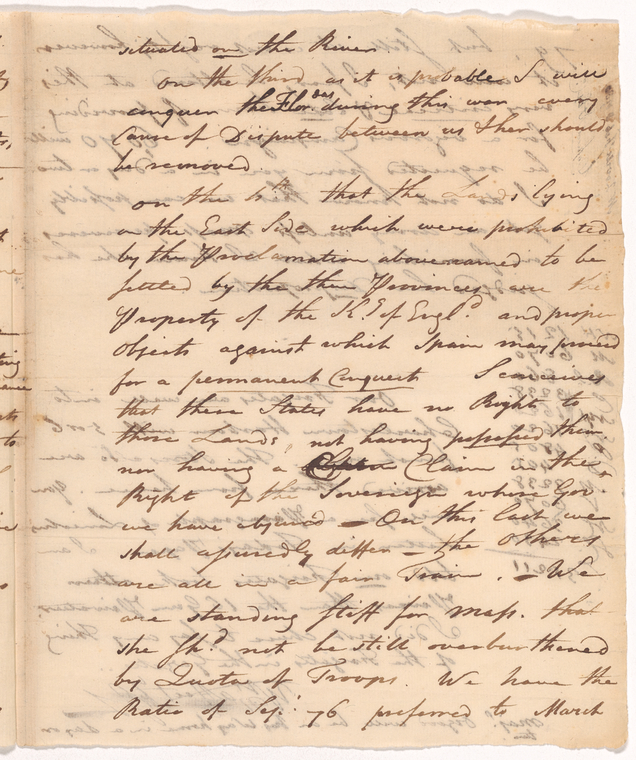 situated on the River
on the third as it is probable S. will
conquer the Floridas during this war every
Cause of Dispute between us & her should
be removed.
on the 4th that the Lands lying
on the East Side which were prohibited
by the Proclamation abovenamed to be
settled by the then Provinces are the
Property of the K.g of Engl.d and proper
objects against which Spain may proceed
for a permanent Conquest S conceives
that these States have no Right to
those Lands, not having possessed them
nor having a Claim in the
Right of the Sovereign whose Gov.t
we have abjured — On this last we
shall assuredly differ — the others
are all in a fair Train. — We
are standing stiff for Mass. that
she sh.d not be still overburthened
by Quota of Troops. We have the
Ratio of Sep.r 76 preferred to March